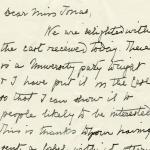 Dear Miss Jonas,
We are delighted with
the cast received today. There
is a University party tonight
& I have put it in the
so that I can show it to
people likely to be interested.
This is thanks to your having
sent a label with it that